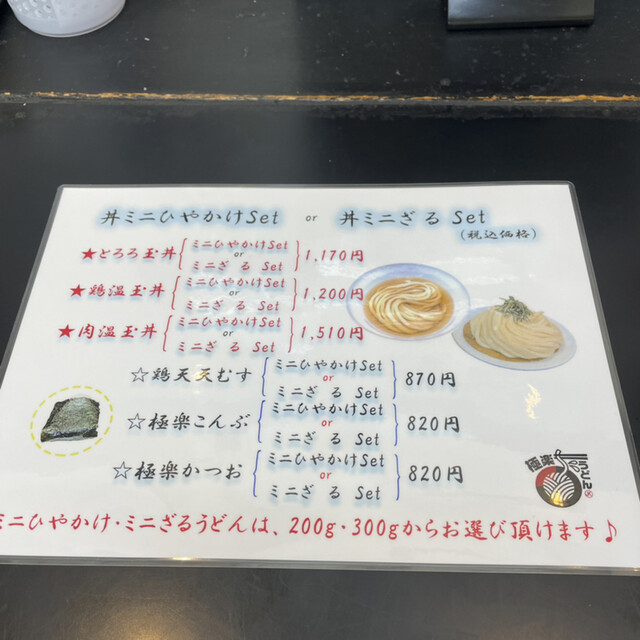 丼ミニひやかけSet or 丼ミニざる Set
(税込価格)
★とろろ玉丼 ミニひやかけSet or ミニざる Set 1,170円
★鶏温玉丼 ミニひやかけSet or ミニざる Set 1,200円
★肉温玉丼 ミニひやかけSet or ミニざる Set 1,510円
☆鶏天天むす ミニひやかけSet or ミニざる Set 870円
☆極楽こんぶ ミニひやかけSet or ミニざる Set 820円
☆極楽かつお ミニひやかけSet or ミニざる Set 820円
極楽うどん
ミニひやかけ・ミニざるうどんは、200g・300gからお選び頂けます♪